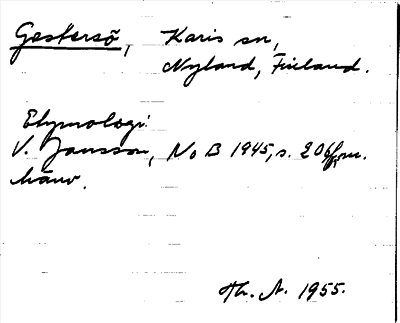 Gestersö, Karis sn,
Nyland, Finland.
Etymologi:
V. Jansson, NoB 1945, s. 206 f, m.
hänv.
Th. A. 1955.